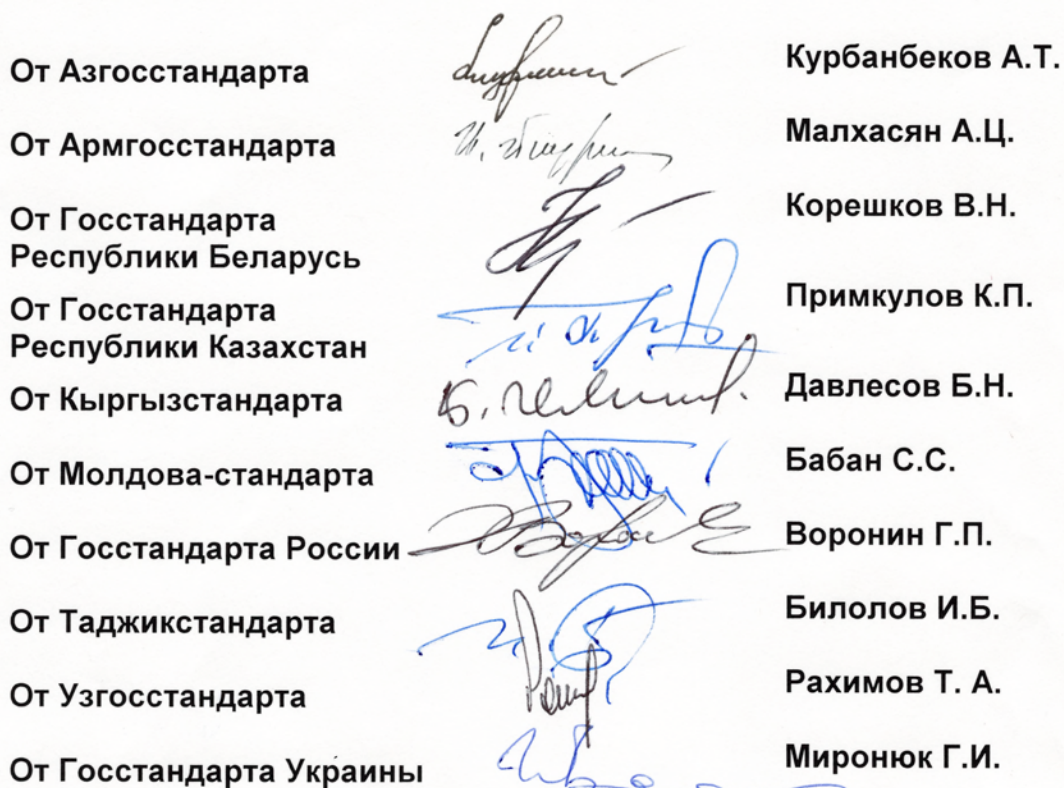 От Азгосстандарта Курбанбеков А.Т.
От Армгосстандарта Малхасян А.Ц.
От Госстандарта
Республики Беларусь Корешков В.Н.
От Госстандарта
Республики Казахстан Примкулов К.П.
От Кыргызстандарта Давлесов Б.Н.
От Молдова-стандарта Бабан С.С.
От Госстандарта России Воронин Г.П.
От Таджикстандарта Билолов И.Б.
От Узгосстандарта Рахимов Т. А.
От Госстандарта Украины Миронюк Г.И.